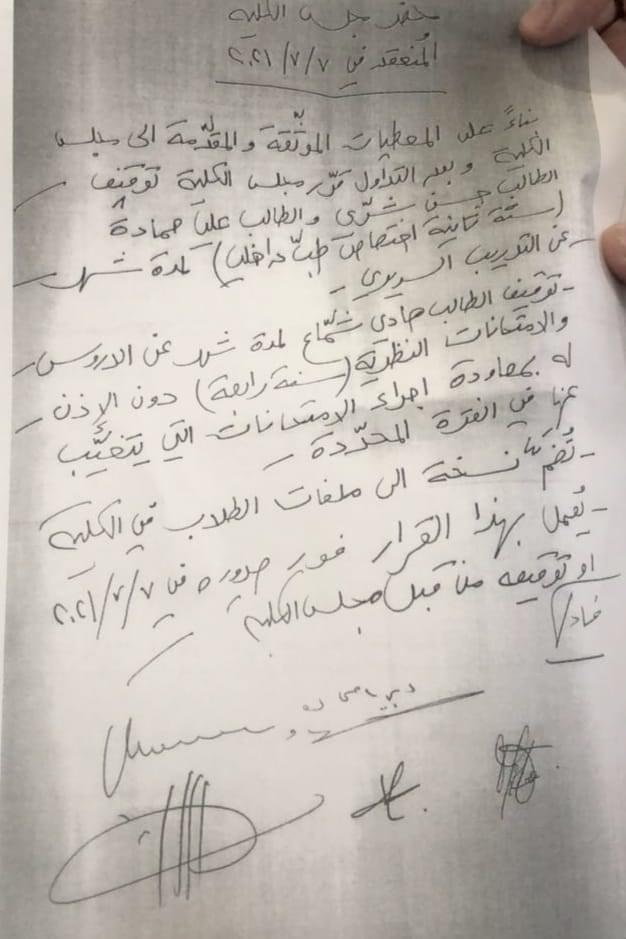 محضر جلسة الكلية
المُنعقد في ٢٠٢١/٧/٧
بناءً على المعطيات الموثّقة والمقدّمة الى مجلس
الكلية وبعد التداول قرّر مجلس الكلية توقيف
الطالب حسن شرّي والطالب علي حمادة
(سنة ثانية اختصاص طبّ داخلي) لمدة شهر
عن التدريب السريري -
- توقيف الطالب هادي شمّاع لمدة شهر عن الدروس
والامتحانات النظريّة (سنة رابعة) دون الإذن
له بمعاودة اجراء الامتحانات التي يتغيَّب
عنها في الفترة المحدّدة -
- تُضم نسخة الى ملفات الطلاب في الكلية
- يُعمل بهذا القرار فور صدوره في ٢٠٢١/٧/٧
او توقيعه من قبل مجلس الكلية